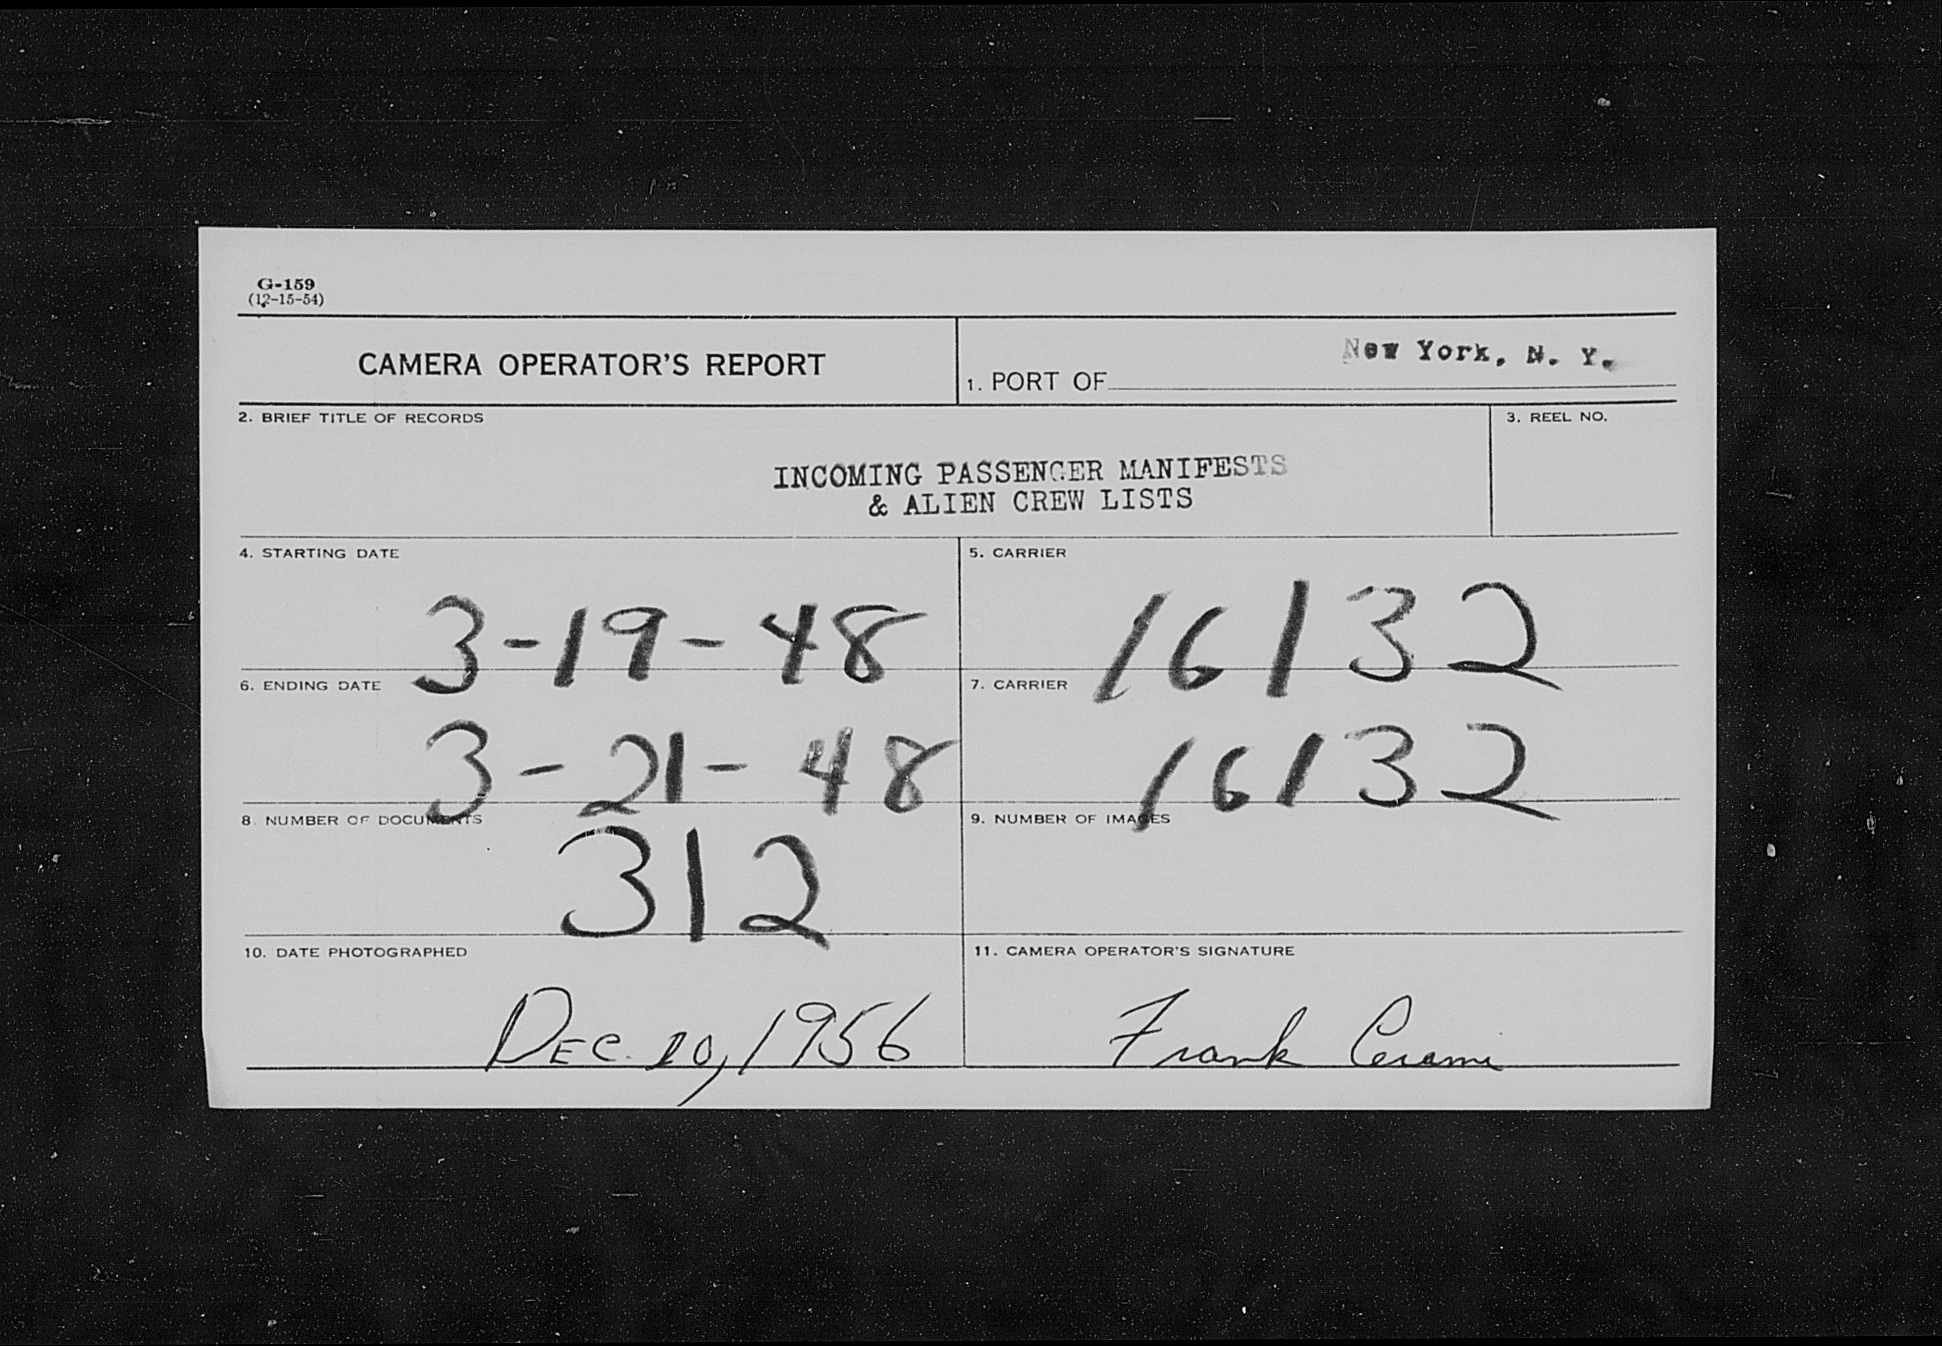 G-159
(12-15-54)
CAMERA OPERATOR'S REPORT
1. PORT OF New York, N. Y.
2. BRIEF TITLE OF RECORDS
3. REEL NO.
INCOMING PASSENGER MANIFESTS
& ALIEN CREW LISTS
4. STARTING DATE
3-19-48
5. CARRIER
16132
6. ENDING DATE
3-21-48
7. CARRIER
16132
8. NUMBER OF DOCUMENTS
312
9. NUMBER OF IMAGES
10. DATE PHOTOGRAPHED
DEC. 20, 1956
11. CAMERA OPERATOR'S SIGNATURE
Frank Cerami